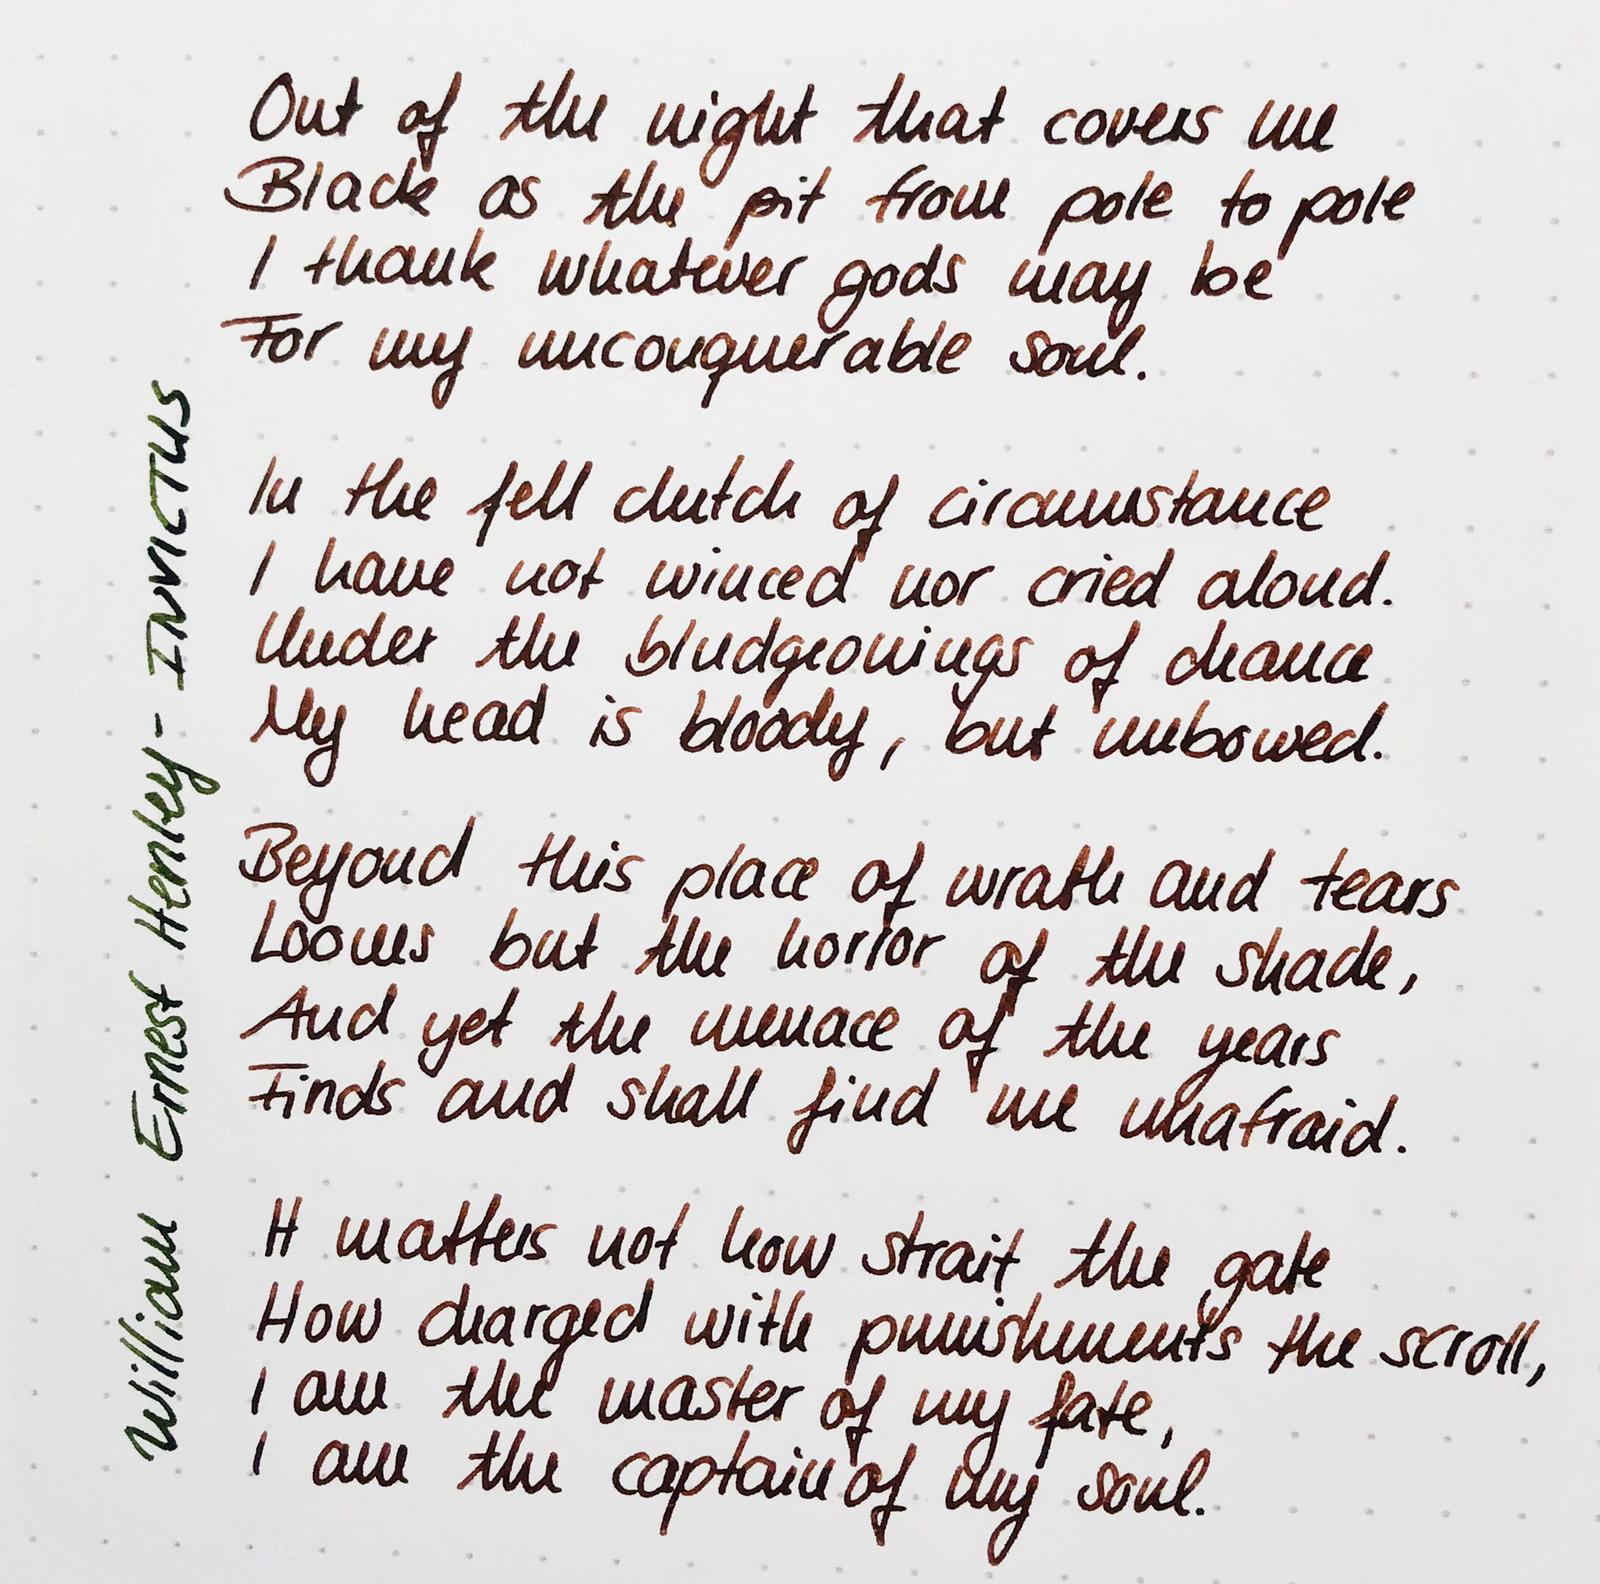 Out of the night that covers me
Black as the pit from pole to pole
I thank whatever gods may be
For my unconquerable soul.
In the fell clutch of circumstance
I have not winced nor cried aloud.
Under the bludgeonings of chance
My head is bloody, but unbowed.
Beyond this place of wrath and tears
Looms but the horror of the shade,
And yet the menace of the years
Finds and shall find me unafraid.
It matters not how strait the gate
How charged with punishments the scroll,
I am the master of my fate,
I am the captain of my soul.
William Ernest Henley - INVICTUS